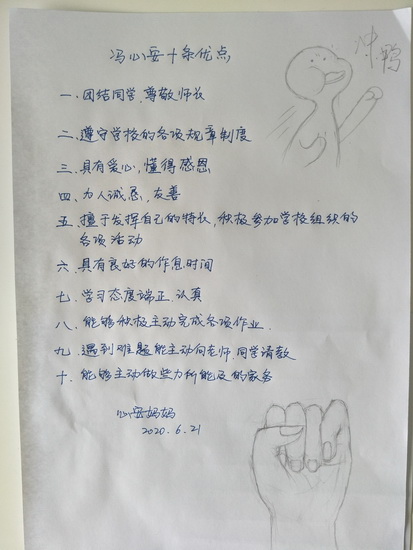 冯心雨十条优点
冲鸭
一、团结同学,尊敬师长
二、遵守学校的各项规章制度
三、具有爱心,懂得感恩
四、为人诚恳,友善
五、擅于发挥自己的特长,积极参加学校组织的
各项活动
六、具有良好的作息时间
七、学习态度端正、认真
八、能够积极主动完成各项作业.
九、遇到难题能主动向老师,同学请教
十、能够主动做些力所能及的家务
心雨妈妈
2020.6.21